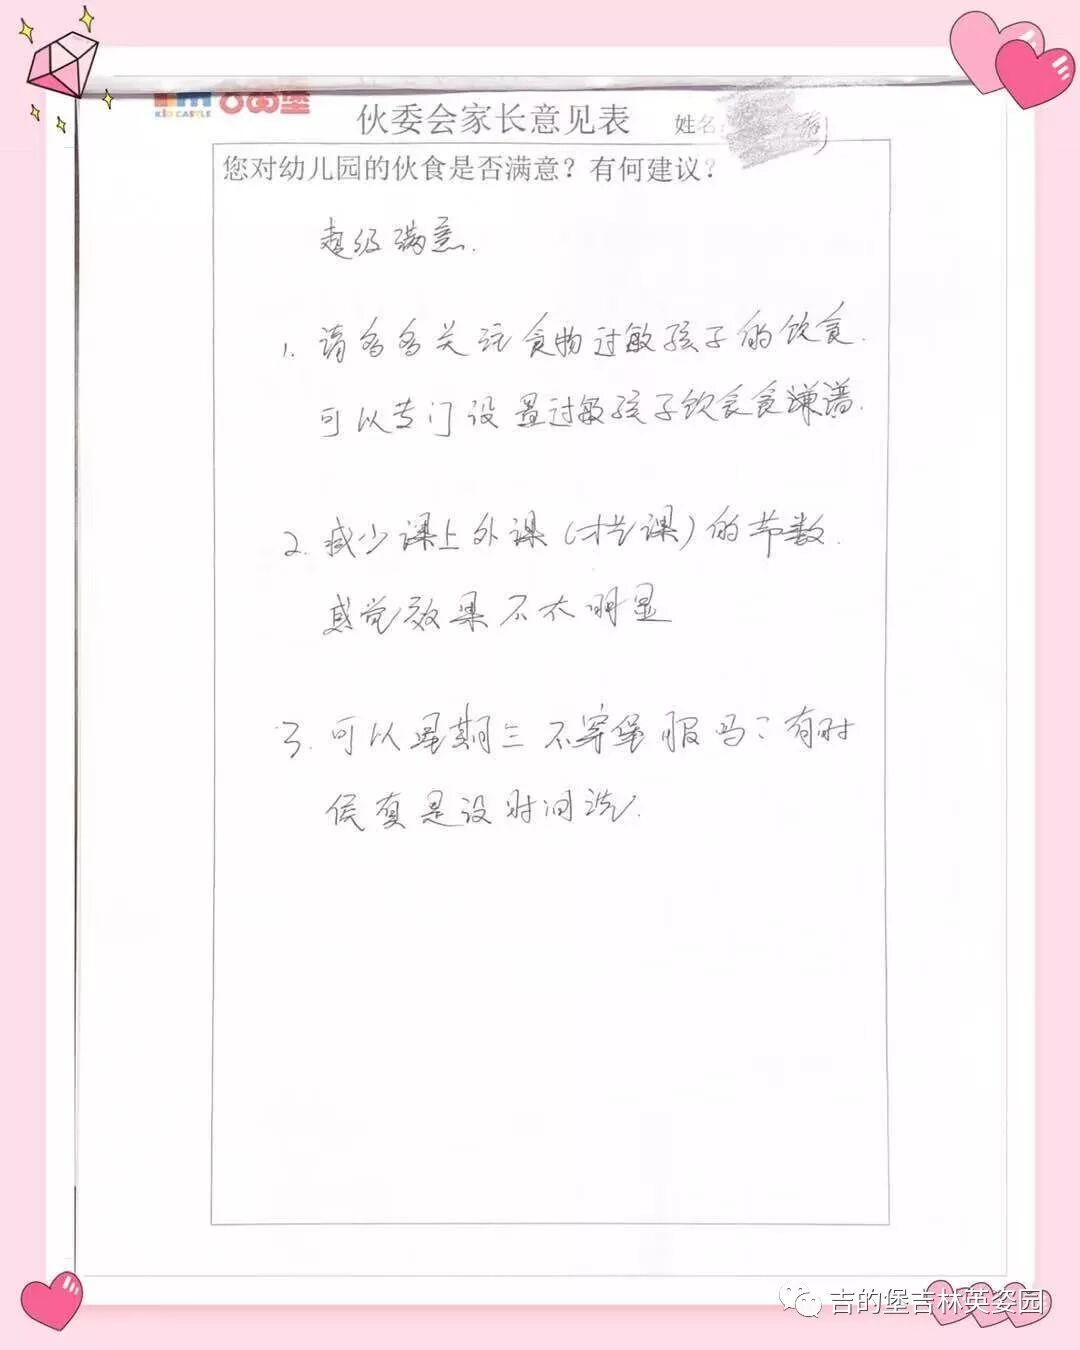 KID CASTLE
伙委会家长意见表 姓名:
您对幼儿园的伙食是否满意？有何建议？
超级满意.
1. 请多多关注食物过敏孩子的饮食.
可以专门设置过敏孩子饮食食谱.
2. 减少课上外课(才艺课)的节数.
感觉效果不太明显
3. 可以星期三不穿堡服吗？有时
侯真是没时间洗.
吉的堡吉林英姿园